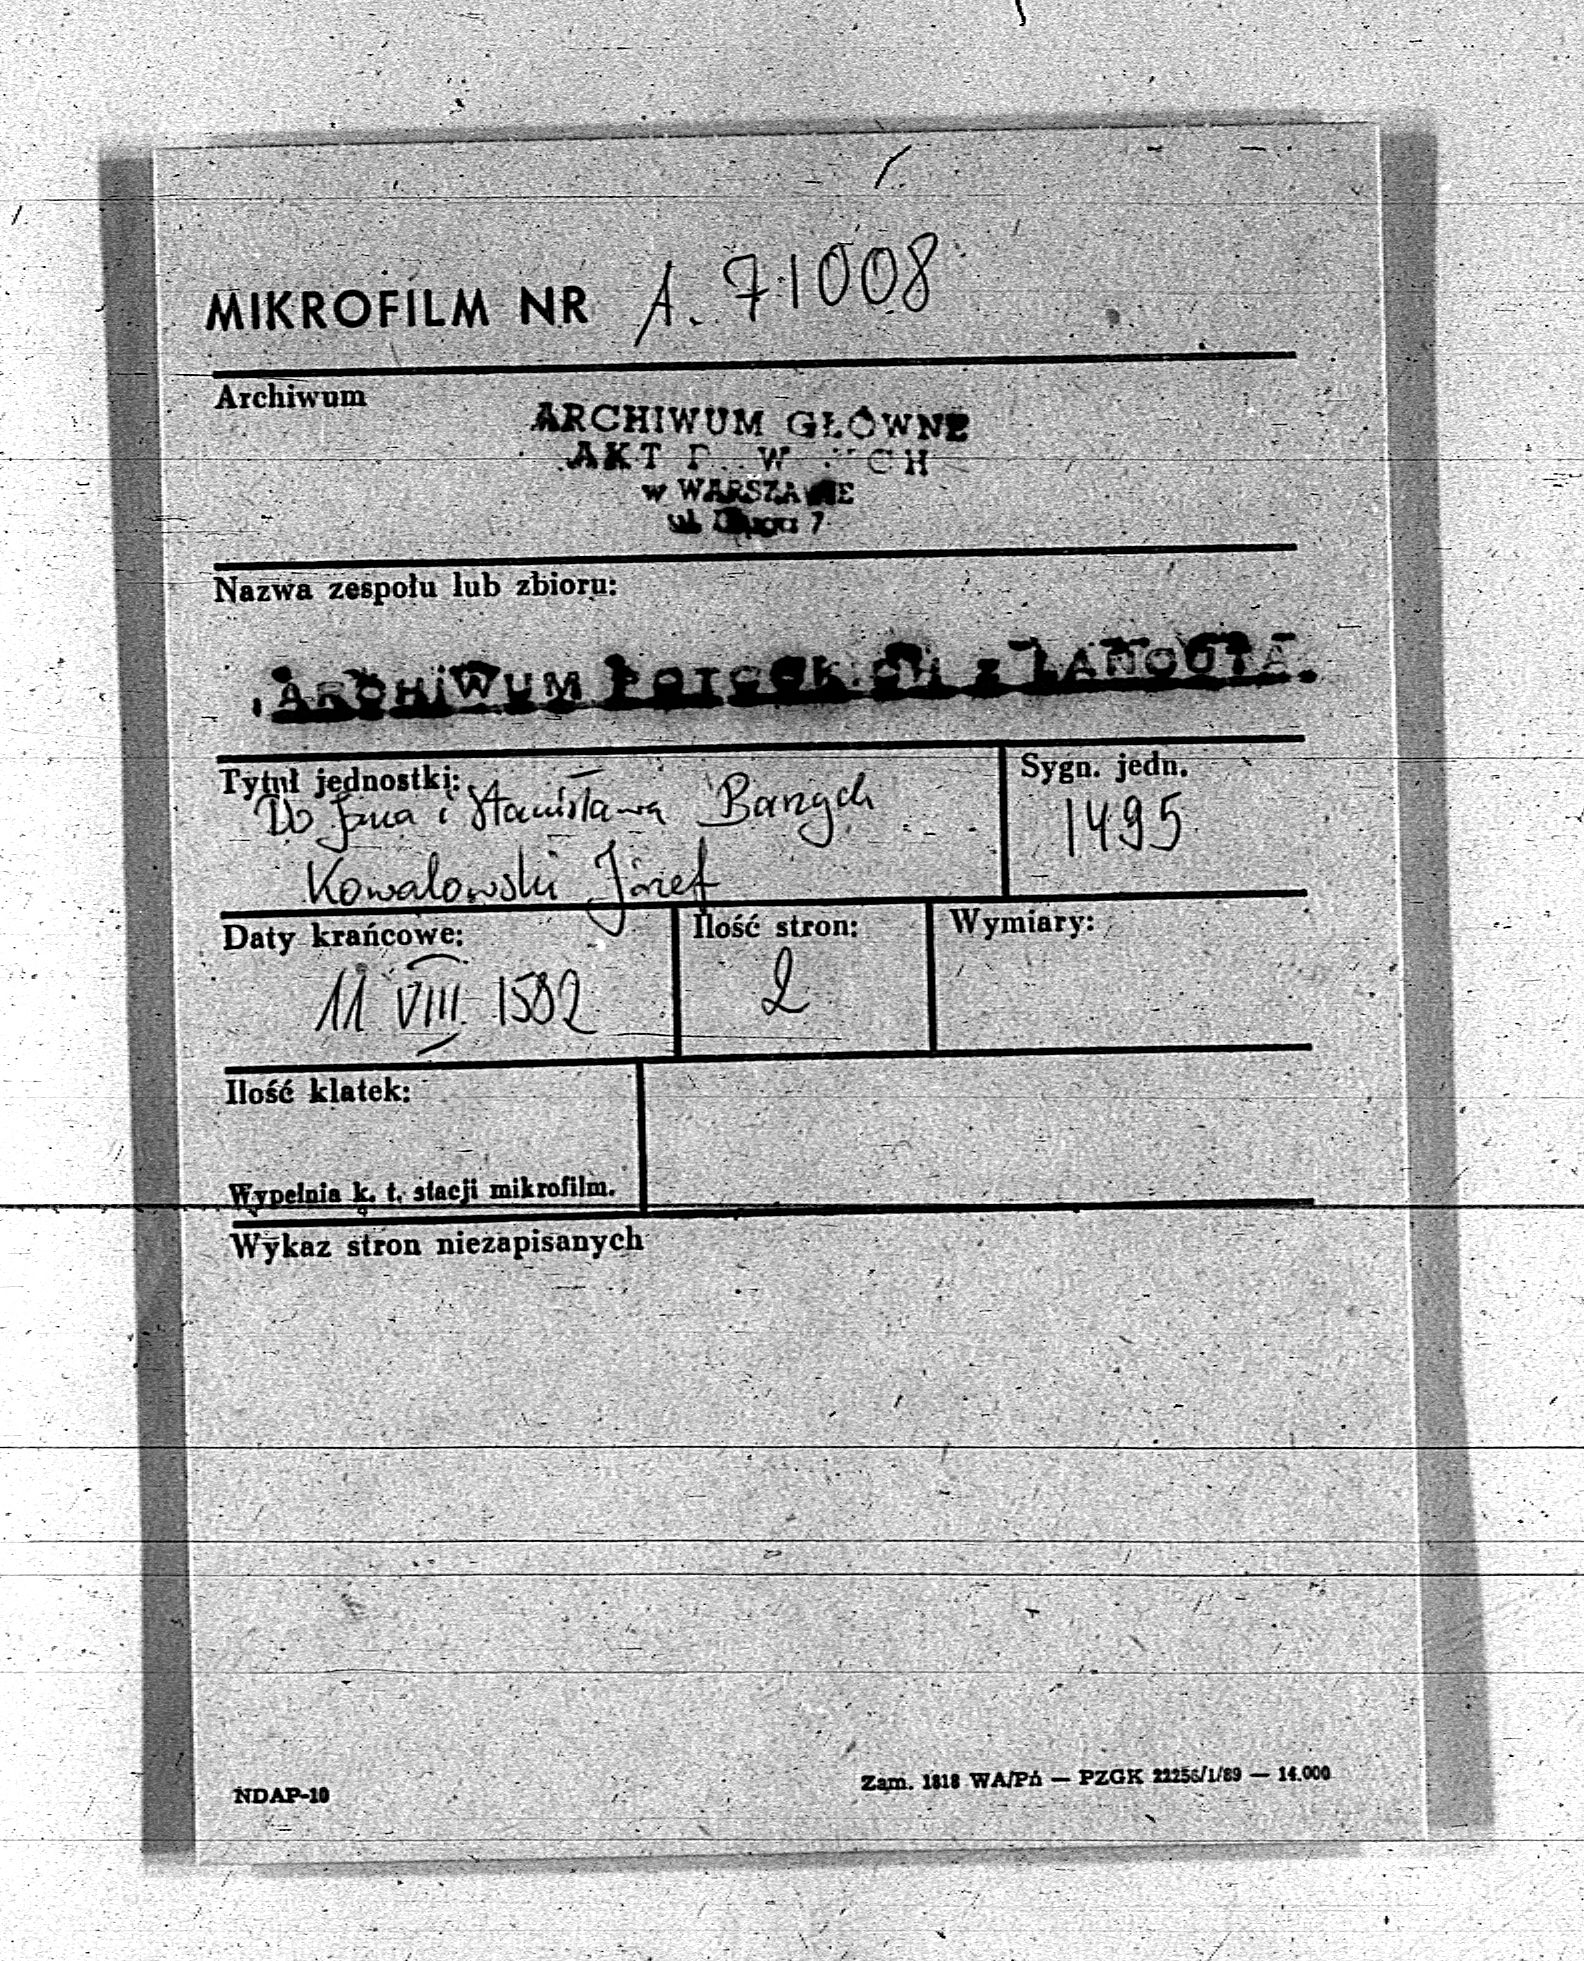 MIKROFILM NR A. 71008
Archiwum
ARCHIWUM GŁÓWNE
AKT
w WARSZAWIE
ul. 7
Nazwa zespołu lub zbioru:
ARCHIWUM POTOCKICH z ŁAŃCUTA
Tytuł jednostki:
Do Jana i Stanisława Barzych
Kowalowski Józef
Sygn. jedn.
1495
Daty krańcowe:
11 VIII 1582
Ilość stron:
2
Wymiary:
Ilość klatek:
Wypełnia k. t. stacji mikrofilm.
Wykaz stron niezapisanych
NDAP-10
Zam. 1818 WA/Pń — PZGK 22256/1/89 — 14.000